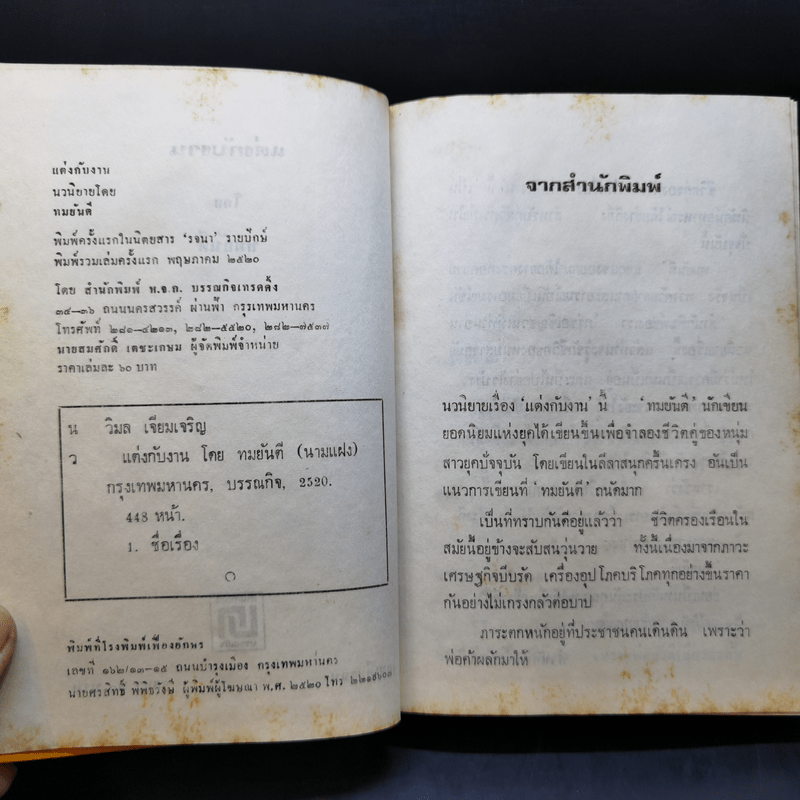 แต่งกับงาน
นวนิยายโดย
ทมยันตี
พิมพ์ครั้งแรกในนิตยสาร ‘รจนา’ รายปักษ์
พิมพ์รวมเล่มครั้งแรก พฤษภาคม ๒๕๒๐
โดย สำนักพิมพ์ ห.จ.ก. บรรณกิจเทรดดิ้ง
๓๔—๓๖ ถนนนครสวรรค์ ผ่านฟ้า กรุงเทพมหานคร
โทรศัพท์ ๒๘๑—๔๒๑๓, ๒๘๒—๕๕๒๐, ๒๘๒—๗๕๓๗
นายสมศักดิ์ เตชะเกษม ผู้จัดพิมพ์จำหน่าย
ราคาเล่มละ ๖๐ บาท
น วิมล เจียมเจริญ
ว แต่งกับงาน โดย ทมยันตี (นามแฝง)
กรุงเทพมหานคร, บรรณกิจ, 2520.
448 หน้า.
1. ชื่อเรื่อง
พิมพ์ที่โรงพิมพ์เฟื่องอักษร
เลขที่ ๑๖๒/๑๓—๑๕ ถนนบำรุงเมือง กรุงเทพมหานคร
นายศรสิทธิ์ พิพิธรังษี ผู้พิมพ์ผู้โฆษณา พ.ศ. ๒๕๒๐ โทร ๒๒๑๕๖๐๓
จากสำนักพิมพ์
นวนิยายเรื่อง ‘แต่งกับงาน’ นี้ ‘ทมยันตี’ นักเขียน
ยอดนิยมแห่งยุคได้เขียนขึ้นเพื่อจำลองชีวิตคู่ของหนุ่ม
สาวยุคปัจจุบัน โดยเขียนในลีลาสนุกครื้นเครง อันเป็น
แนวการเขียนที่ ‘ทมยันตี’ ถนัดมาก
เป็นที่ทราบกันดีอยู่แล้วว่า ชีวิตครองเรือนใน
สมัยนี้อยู่ข้างจะสับสนวุ่นวาย ทั้งนี้เนื่องมาจากภาวะ
เศรษฐกิจบีบรัด เครื่องอุปโภคบริโภคทุกอย่างขึ้นราคา
กันอย่างไม่เกรงกลัวต่อบาป
ภาระตกหนักอยู่ที่ประชาชนคนเดินดิน เพราะว่า
พ่อค้าผลักมาให้